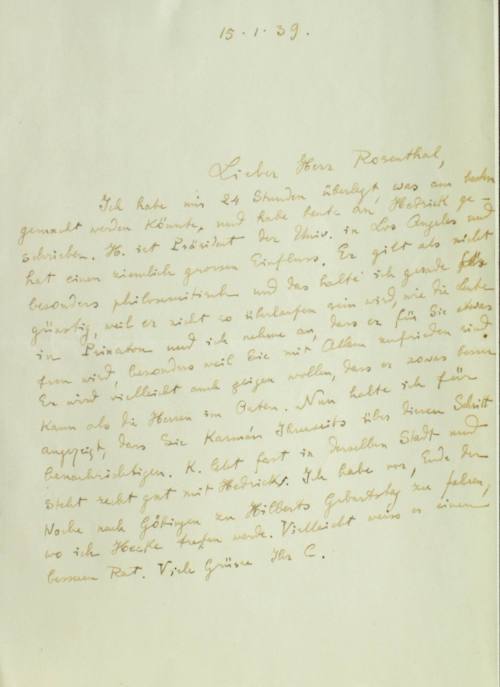 15.1.39.
Lieber Herr Rosenthal,
Ich habe mir 24 Stunden überlegt, was am besten
gemacht werden könnte, und habe heute an Hedrick ge-
schrieben. H. ist Präsident der Univ. in Los Angeles und
hat einen ziemlich grossen Einfluss. Er gilt als nicht
besonders philosemitisch und das halte ich gerade für
günstig, weil er nicht so überlaufen sein wird, wie die Leute
in Princeton und ich nehme an, dass er für Sie etwas
tun wird, besonders weil Sie mit Allem zufrieden sind.
Er wird vielleicht auch zeigen wollen, dass er sowas besser
kann als die Herren im Osten. Nun halte ich für
angezeigt, dass Sie Kármán Ihrerseits über diesen Schritt
benachrichtigen. K. lebt fast in derselben Stadt und
steht recht gut mit Hedrick. Ich habe vor, Ende der
Woche nach Göttingen zu Hilberts Geburtstag zu fahren,
wo ich Hecke treffen werde. Vielleicht weiss er einen
besseren Rat. Viele Grüsse Ihr C.